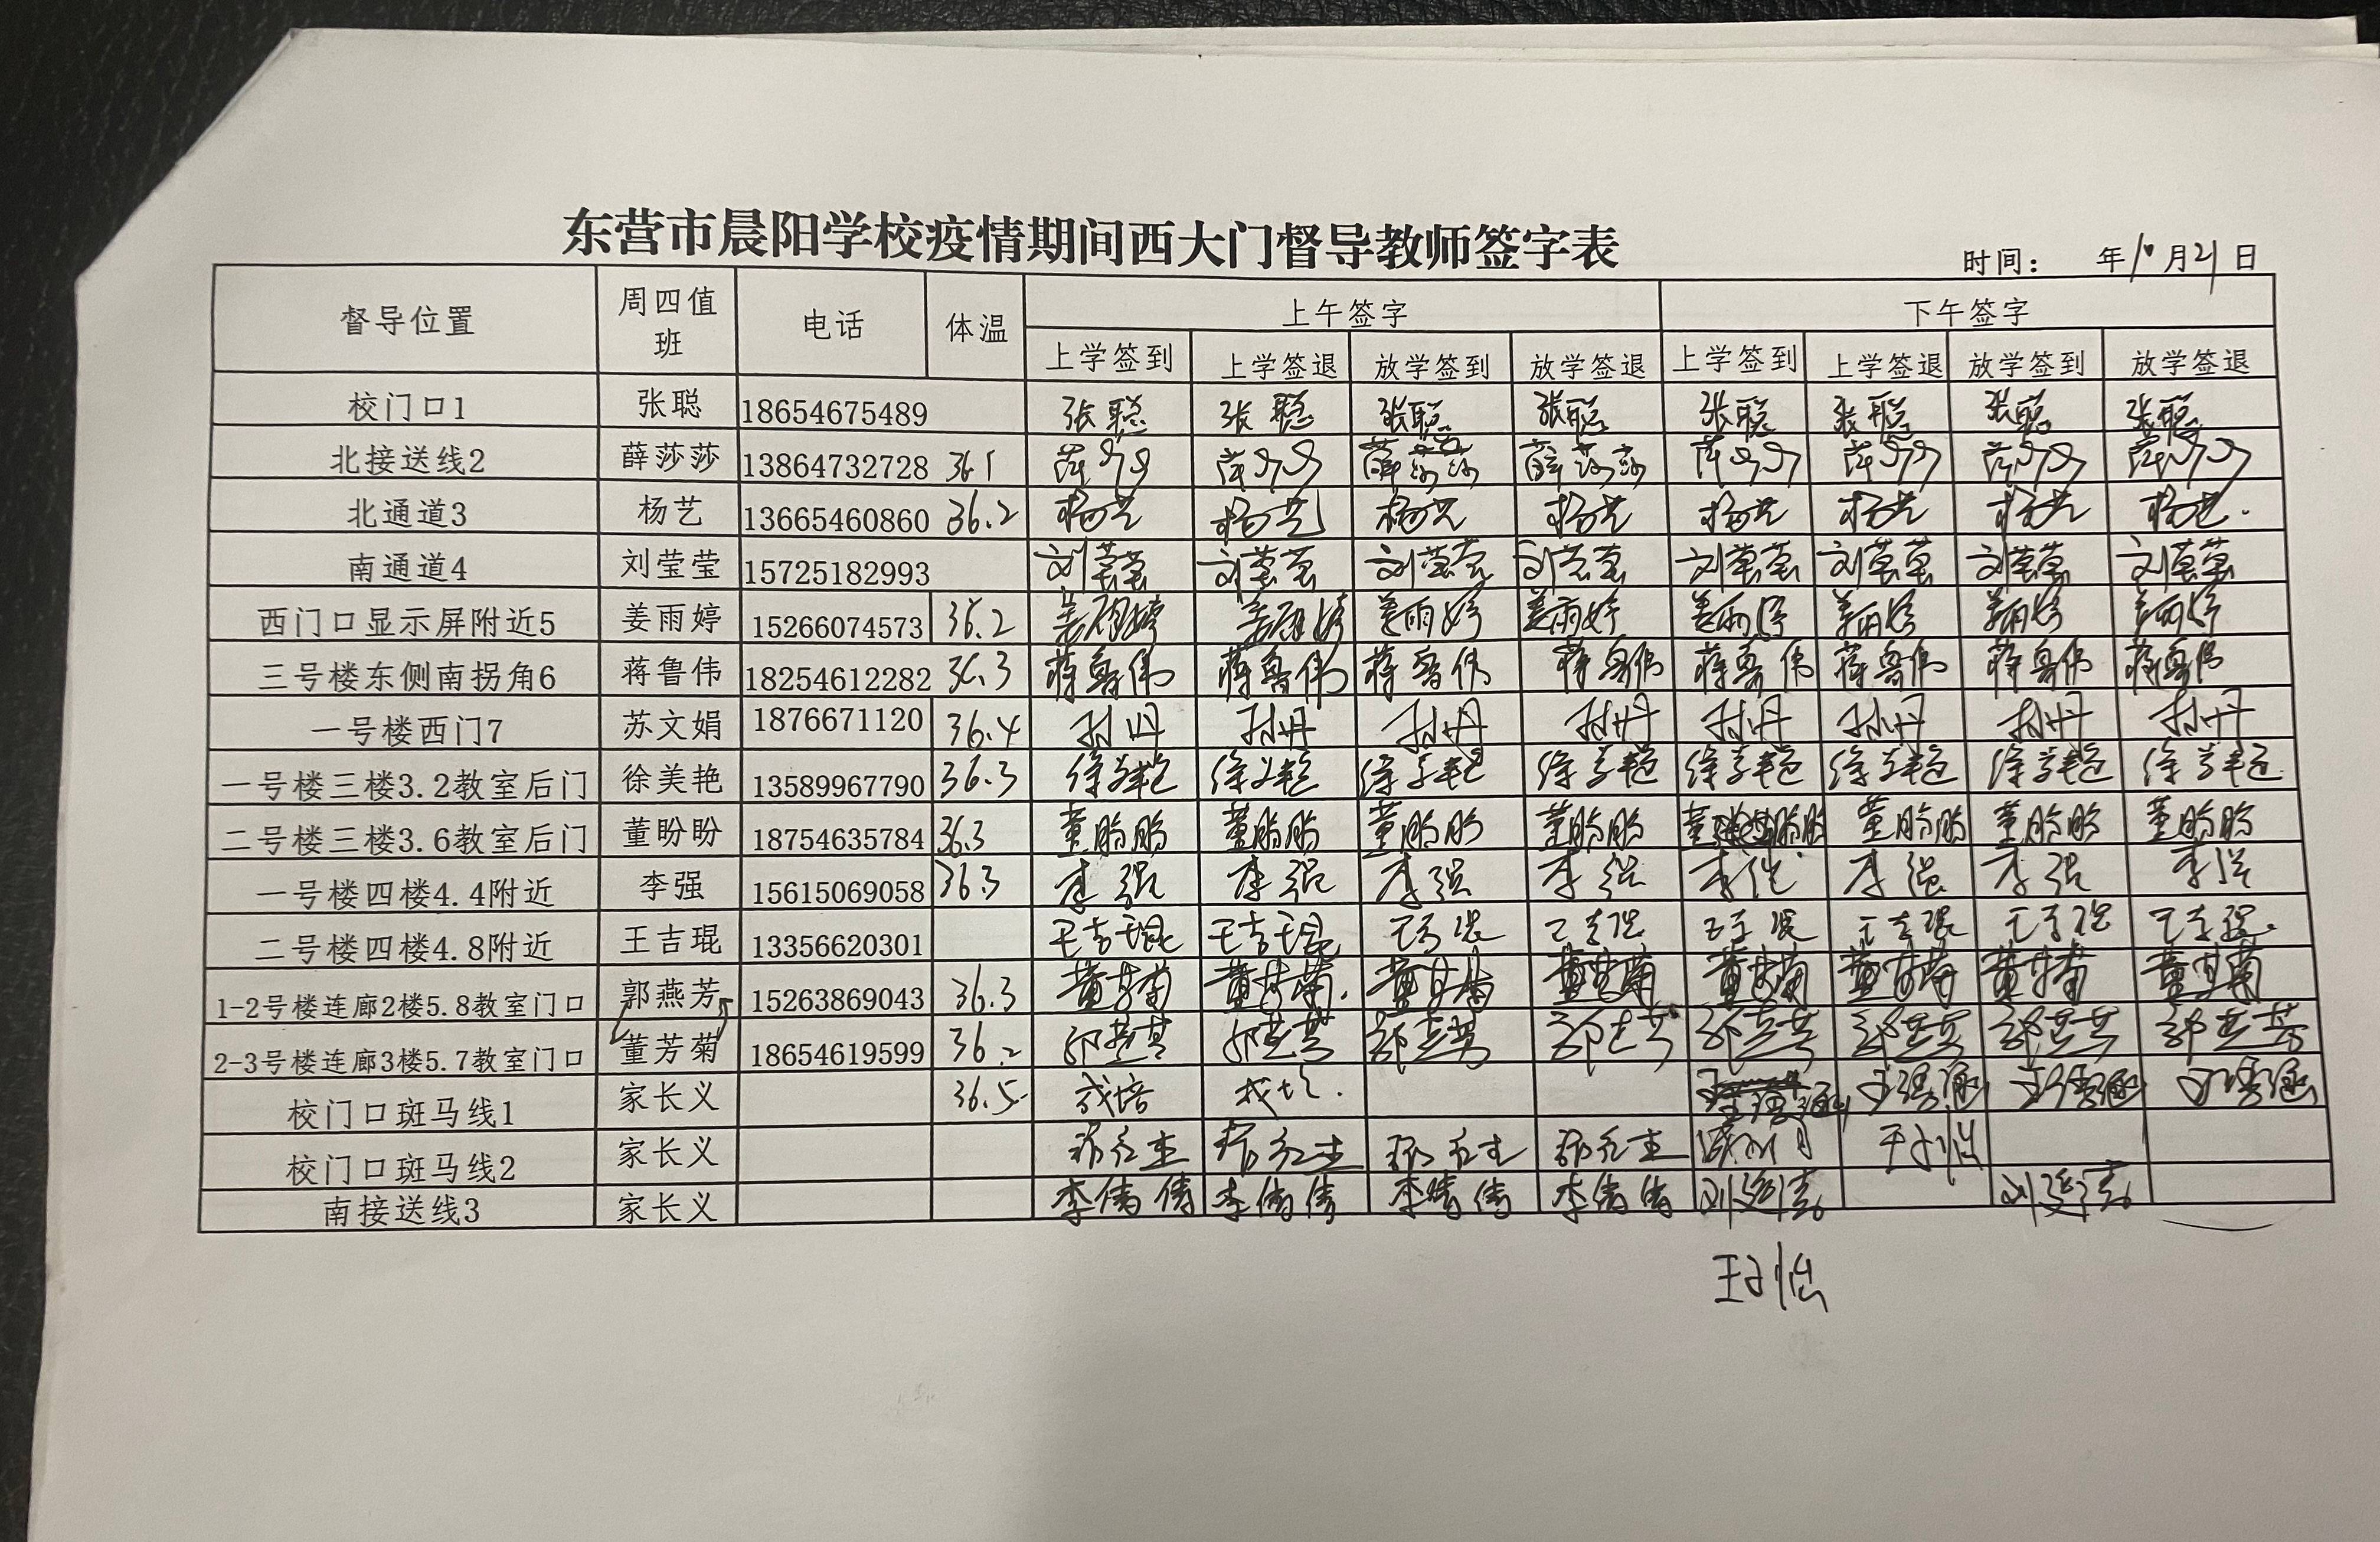 东营市晨阳学校疫情期间西大门督导教师签字表
时间： 年10月21日
督导位置 周四值班 电话 体温 上午签字 下午签字
上学签到 上学签退 放学签到 放学签退 上学签到 上学签退 放学签到 放学签退
校门口1 张聪 18654675489 张聪 张聪 张聪 张聪 张聪 张聪 张聪 张聪
北接送线2 薛莎莎 13864732728 36.1 薛莎莎 薛莎莎 薛莎莎 薛莎莎 薛莎莎 薛莎莎 薛莎莎 薛莎莎
北通道3 杨艺 13665460860 36.2 杨艺 杨艺 杨艺 杨艺 杨艺 杨艺 杨艺 杨艺.
南通道4 刘莹莹 15725182993 刘莹莹 刘莹莹 刘莹莹 刘莹莹 刘莹莹 刘莹莹 刘莹莹 刘莹莹
西门口显示屏附近5 姜雨婷 15266074573 36.2 姜雨婷 姜雨婷 姜雨婷 姜雨婷 姜雨婷 姜雨婷 姜雨婷 姜雨婷
三号楼东侧南拐角6 蒋鲁伟 18254612282 36.3 蒋鲁伟 蒋鲁伟 蒋鲁伟 蒋鲁伟 蒋鲁伟 蒋鲁伟 蒋鲁伟 蒋鲁伟
一号楼西门7 苏文娟 1876671120 36.4 孙丹 孙丹 孙丹 孙丹 孙丹 孙丹 孙丹 孙丹
一号楼三楼3.2教室后门 徐美艳 13589967790 36.3 徐美艳 徐美艳 徐美艳 徐美艳 徐美艳 徐美艳 徐美艳 徐美艳
二号楼三楼3.6教室后门 董盼盼 18754635784 36.3 董盼盼 董盼盼 董盼盼 董盼盼 董盼盼 董盼盼 董盼盼 董盼盼
一号楼四楼4.4附近 李强 15615069058 36.3 李强 李强 李强 李强 李强 李强 李强 李强
二号楼四楼4.8附近 王吉琨 13356620301 王吉琨 王吉琨 王吉琨 王吉琨 王吉琨 王吉琨 王吉琨 王吉琨.
1-2号楼连廊2楼5.8教室门口 郭燕芳 15263869043 36.3 董芳菊 董芳菊. 董芳菊 董芳菊 董芳菊 董芳菊 董芳菊 董芳菊
2-3号楼连廊3楼5.7教室门口 董芳菊 18654619599 36.2 郭燕芳 郭燕芳 郭燕芳 郭燕芳 郭燕芳 郭燕芳 郭燕芳 郭燕芳
校门口斑马线1 家长义 36.5
校门口斑马线2 家长义 王子怡
南接送线3 家长义 李倩倩 李倩倩 李倩倩 李倩倩
王子怡